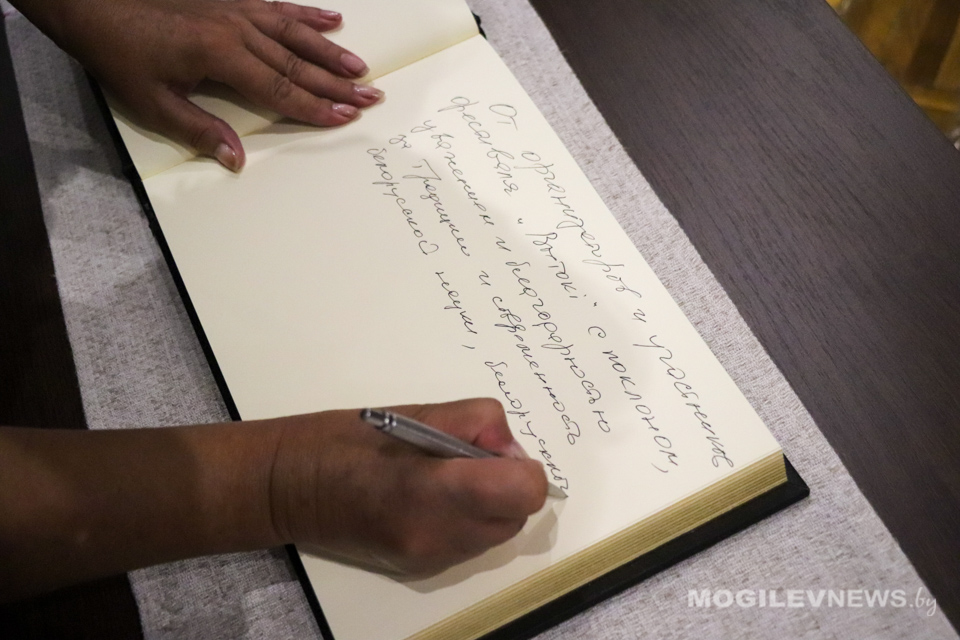 От организаторов и участников
фестиваля "Вытокі" с поклоном,
уважением и благодарностью
за традиции и современность
белорусской науки, белорусской
MOGILEVNEWS.by